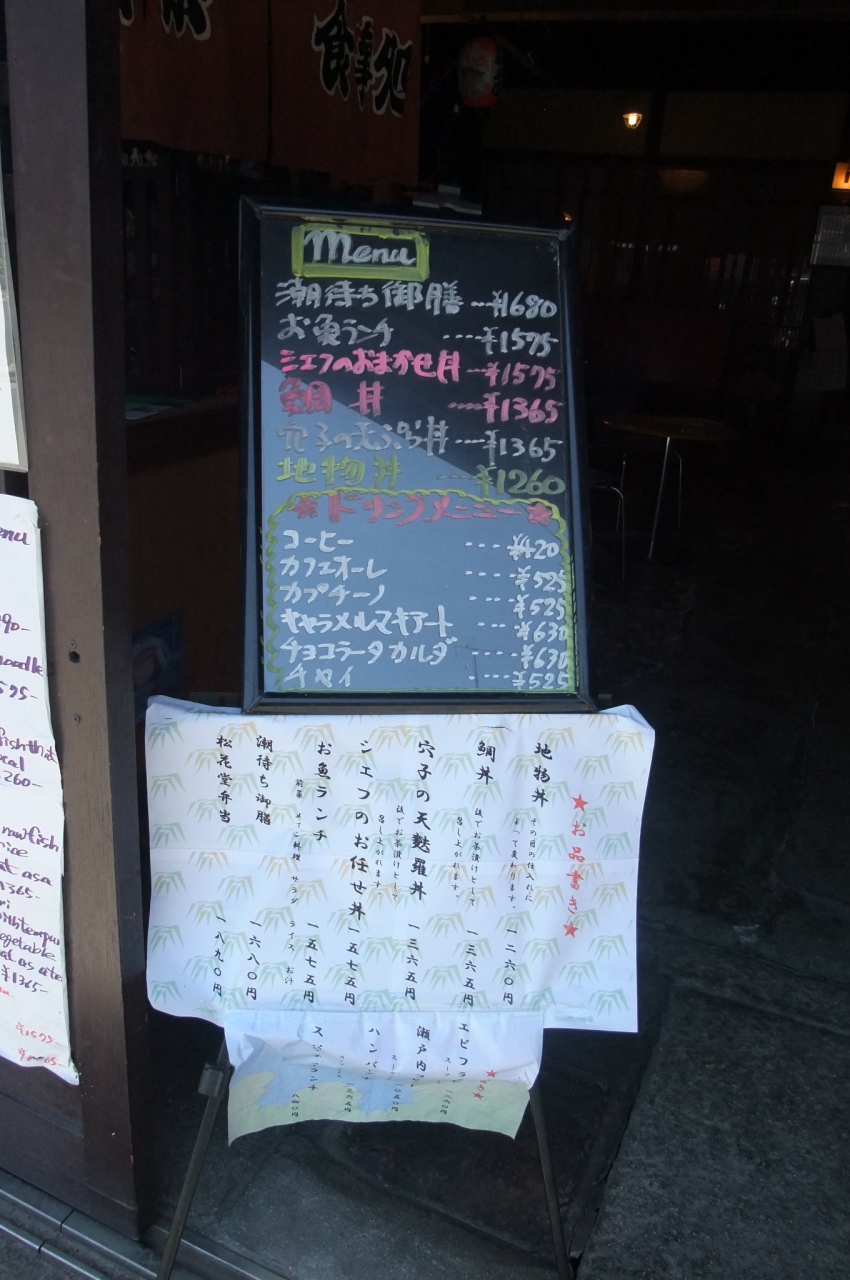 食事処
Menu
潮待ち御膳 ---¥1680
お魚ランチ ----¥1575
シェフのおまかせ丼 --¥1575
鯛丼 ----¥1365
穴子の天ぷら丼 ---¥1365
地物丼 ----¥1260
★ドリンクメニュー★
コーヒー ----¥420
カフェオーレ ----¥525
カプチーノ ----¥525
キャラメルマキアート ---¥630
チョコラータカルダ ----¥630
チャイ ----¥525
★お品書き★
地物丼 一二六〇円
その日の仕入れに
よって変わります。
鯛丼 一三六五円
後でお茶漬けとして
召し上がれます。
穴子の天麩羅丼 一三六五円
後でお茶漬けとして
召し上がれます。
シェフのお任せ丼 一五七五円
お魚ランチ 一五七五円
前菜 メイン料理 サラダ ライス お汁
潮待ち御膳 一六八〇円
松花堂弁当 一八九〇円
エビフラ
スープ
瀬戸内
ハンバ
ランチ
enu
90-
noodle
575-
fish that
ocal
260-
raw fish
rice
at as a
1365-
with tempu
egetable
at as a
¥1365-
¥1575-